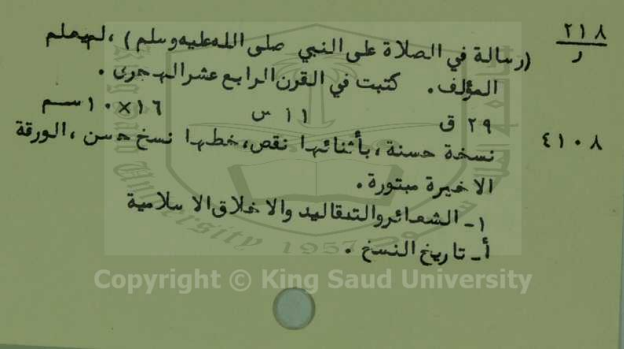 ٢١٨
ر
(رسالة في الصلاة على النبي صلى الله عليه وسلم)، لم يعلم
المؤلف. كتبت في القرن الرابع عشر الهجري.
٢٩ ق ١١ س ١٦×١٠ سم
٤١٠٨
نسخة حسنة، بأثنائها نقص، خطها نسخ حسن، الورقة
الاخيرة مبتورة.
١- الشعائر والتقاليد والاخلاق الاسلامية
أ- تاريخ النسخ.
1957
Copyright © King Saud University